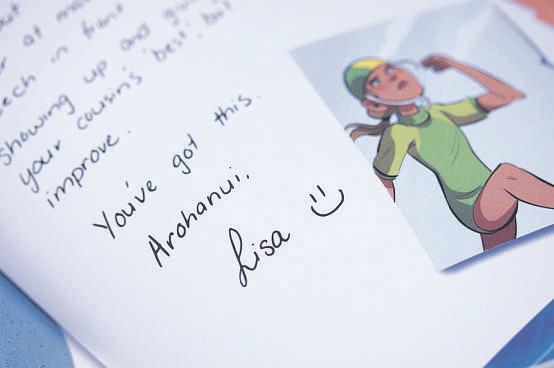 at ma
ech in front
showing up and giv
your cousin's best, but
improve.
You've got this.
Arohanui,
Lisa